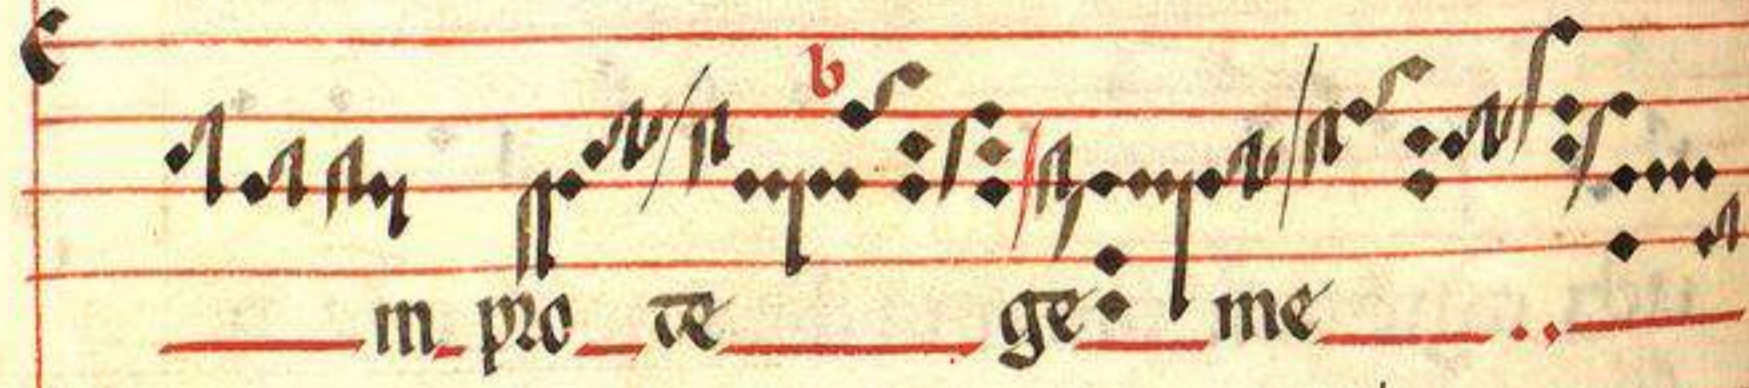 b
m pro te ge me